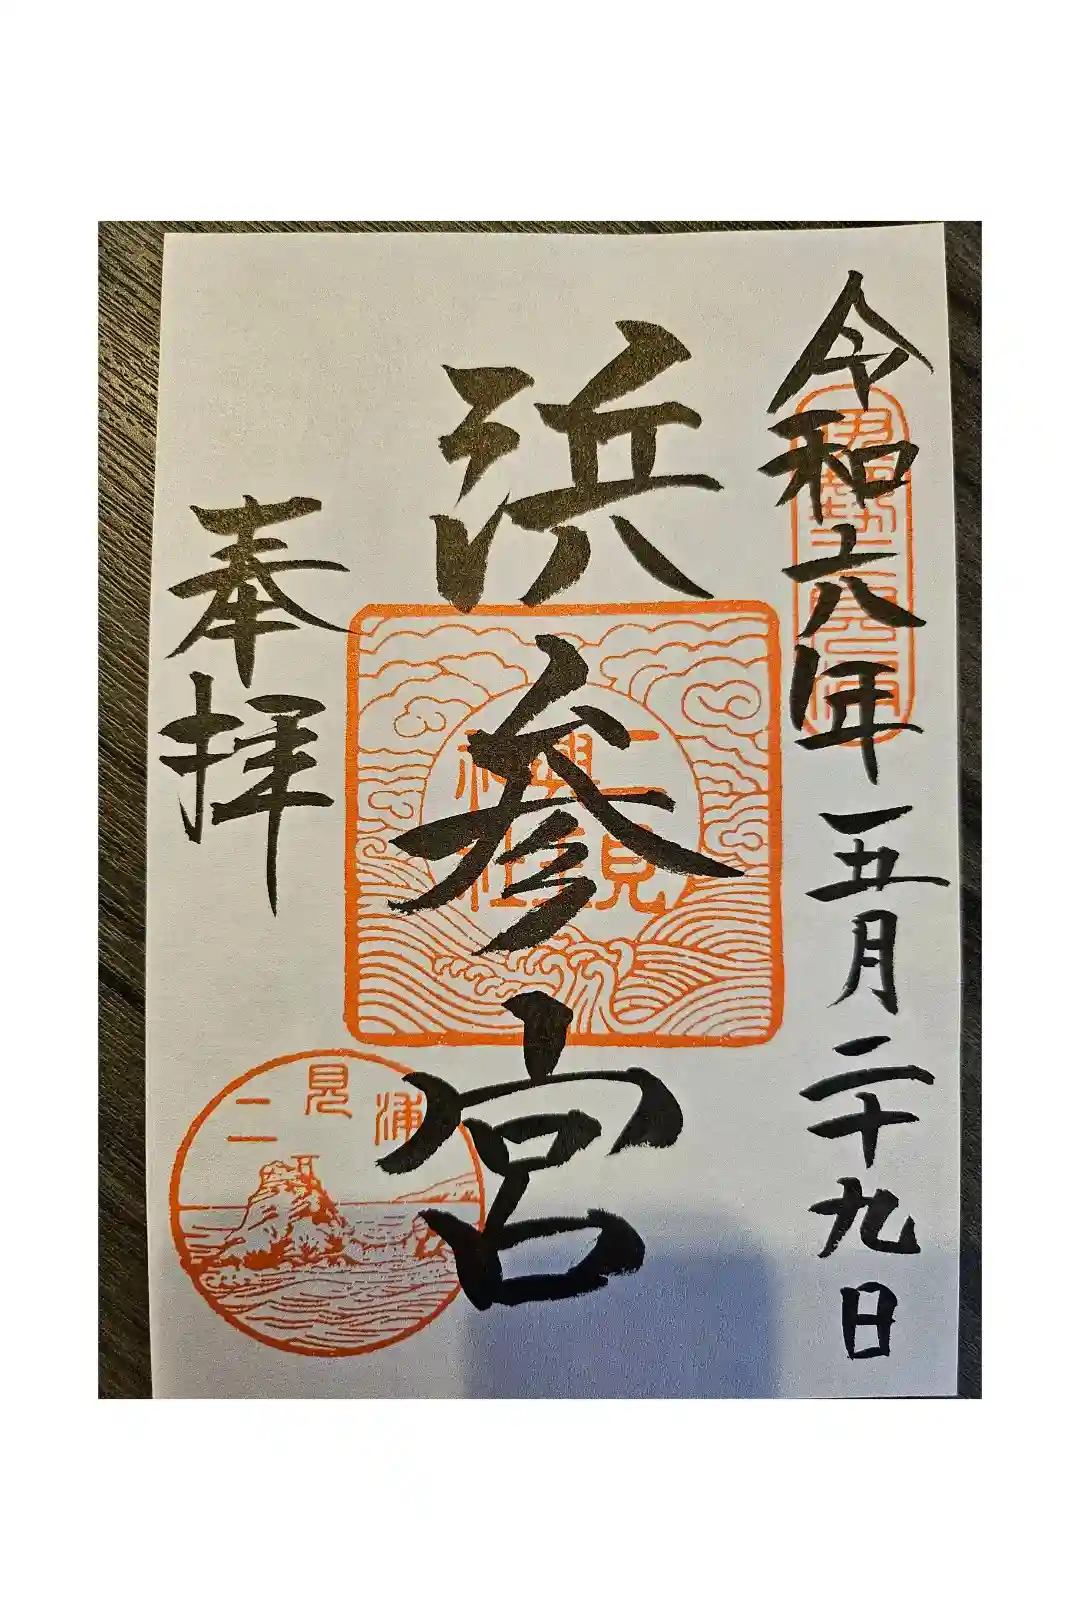 令和六年五月二十九日
伊勢二見浦
浜参宮
二見
興玉
神社
奉拝
二見浦